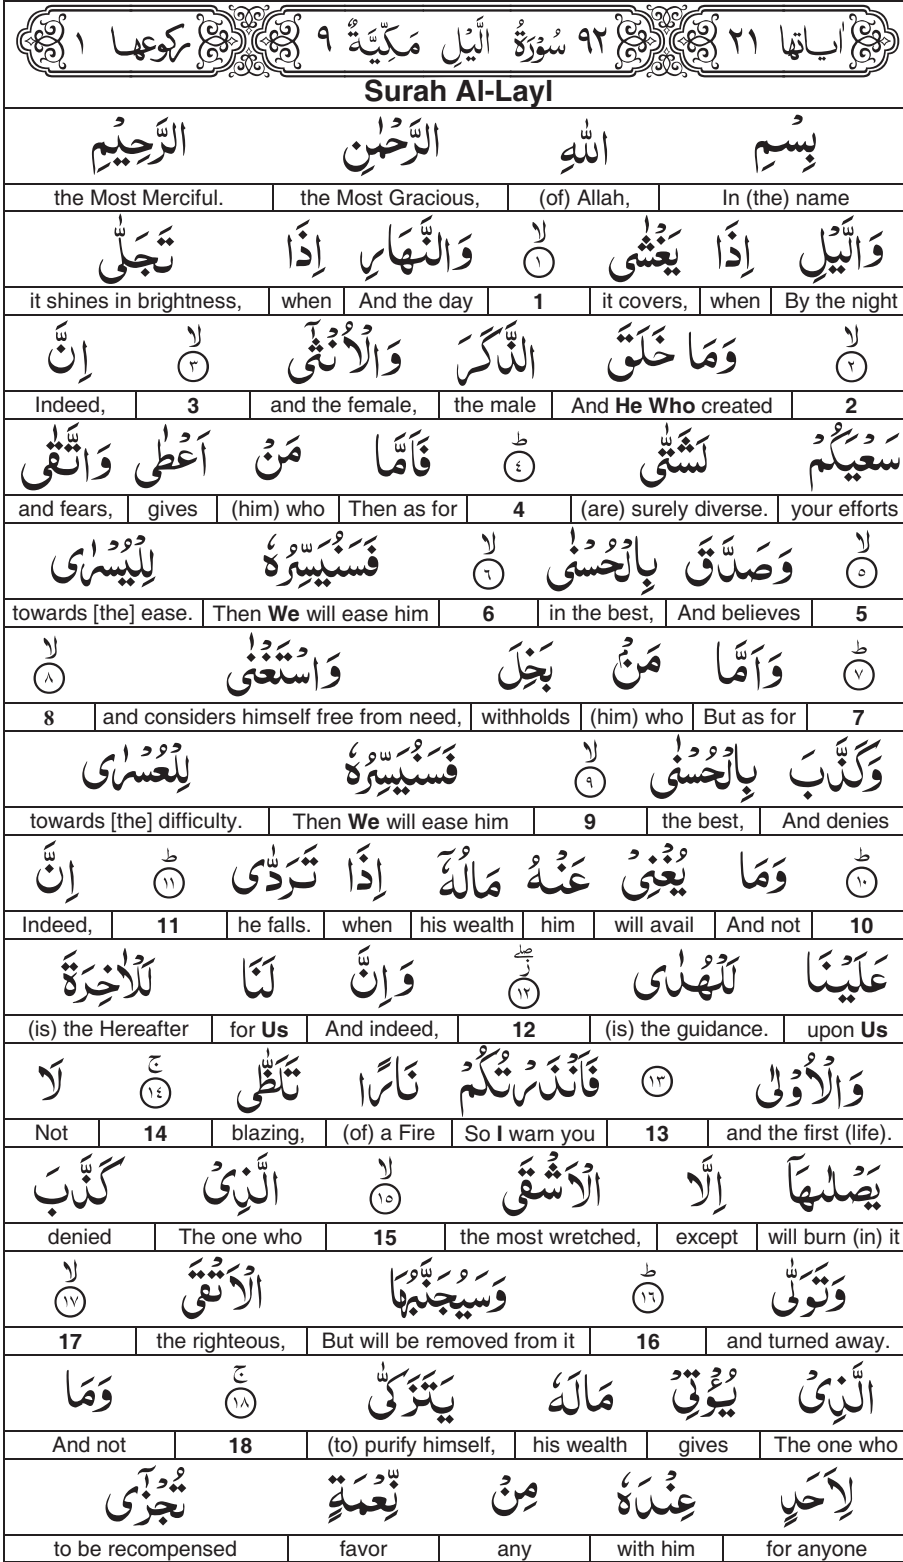 اٰیاتھا ٢١ ٩٢ سُوۡرَۃُ الَّیۡلِ مَکِّیَّۃٌ ٩ رکوعھا ١
Surah Al-Layl
بِسۡمِ اللّٰہِ الرَّحۡمٰنِ الرَّحِیۡمِ
In (the) name (of) Allah, the Most Gracious, the Most Merciful.
وَالَّیۡلِ اِذَا یَغۡشٰی ۙ﴿۱﴾ وَالنَّہَارِ اِذَا تَجَلّٰی
By the night when it covers, 1 And the day when it shines in brightness,
ۙ﴿۲﴾ وَمَا خَلَقَ الذَّکَرَ وَالۡاُنۡثٰۤی ۙ﴿۳﴾ اِنَّ
2 And He Who created the male and the female, 3 Indeed,
سَعۡیَکُمۡ لَشَتّٰی ؕ﴿۴﴾ فَاَمَّا مَنۡ اَعۡطٰی وَاتَّقٰی
your efforts (are) surely diverse. 4 Then as for (him) who gives and fears,
ۙ﴿۵﴾ وَصَدَّقَ بِالۡحُسۡنٰی ۙ﴿۶﴾ فَسَنُیَسِّرُہٗ لِلۡیُسۡرٰی
5 And believes in the best, 6 Then We will ease him towards [the] ease.
ؕ﴿۷﴾ وَاَمَّا مَنۡۢ بَخِلَ وَاسۡتَغۡنٰی ۙ﴿۸﴾
7 But as for (him) who withholds and considers himself free from need, 8
وَکَذَّبَ بِالۡحُسۡنٰی ۙ﴿۹﴾ فَسَنُیَسِّرُہٗ لِلۡعُسۡرٰی
And denies the best, 9 Then We will ease him towards [the] difficulty.
ؕ﴿۱۰﴾ وَمَا یُغۡنِیۡ عَنۡہُ مَالُہٗۤ اِذَا تَرَدّٰی ؕ﴿۱۱﴾ اِنَّ
10 And not will avail him his wealth when he falls. 11 Indeed,
عَلَیۡنَا لَلۡہُدٰی ۫ۖ﴿۱۲﴾ وَاِنَّ لَنَا لَلۡاٰخِرَۃَ
upon Us (is) the guidance. 12 And indeed, for Us (is) the Hereafter
وَالۡاُوۡلٰی ﴿۱۳﴾ فَاَنۡذَرۡتُکُمۡ نَارًا تَلَظّٰی ۚ﴿۱۴﴾ لَا
and the first (life). 13 So I warn you (of) a Fire blazing, 14 Not
یَصۡلٰىہَاۤ اِلَّا الۡاَشۡقَی ۙ﴿۱۵﴾ الَّذِیۡ کَذَّبَ
will burn (in) it except the most wretched, 15 The one who denied
وَتَوَلّٰی ؕ﴿۱۶﴾ وَسَیُجَنَّبُہَا الۡاَتۡقَی ۙ﴿۱۷﴾
and turned away. 16 But will be removed from it the righteous, 17
الَّذِیۡ یُؤۡتِیۡ مَالَہٗ یَتَزَکّٰی ۚ﴿۱۸﴾ وَمَا
The one who gives his wealth (to) purify himself, 18 And not
لِاَحَدٍ عِنۡدَہٗ مِنۡ نِّعۡمَۃٍ تُجۡزٰۤی
for anyone with him any favor to be recompensed